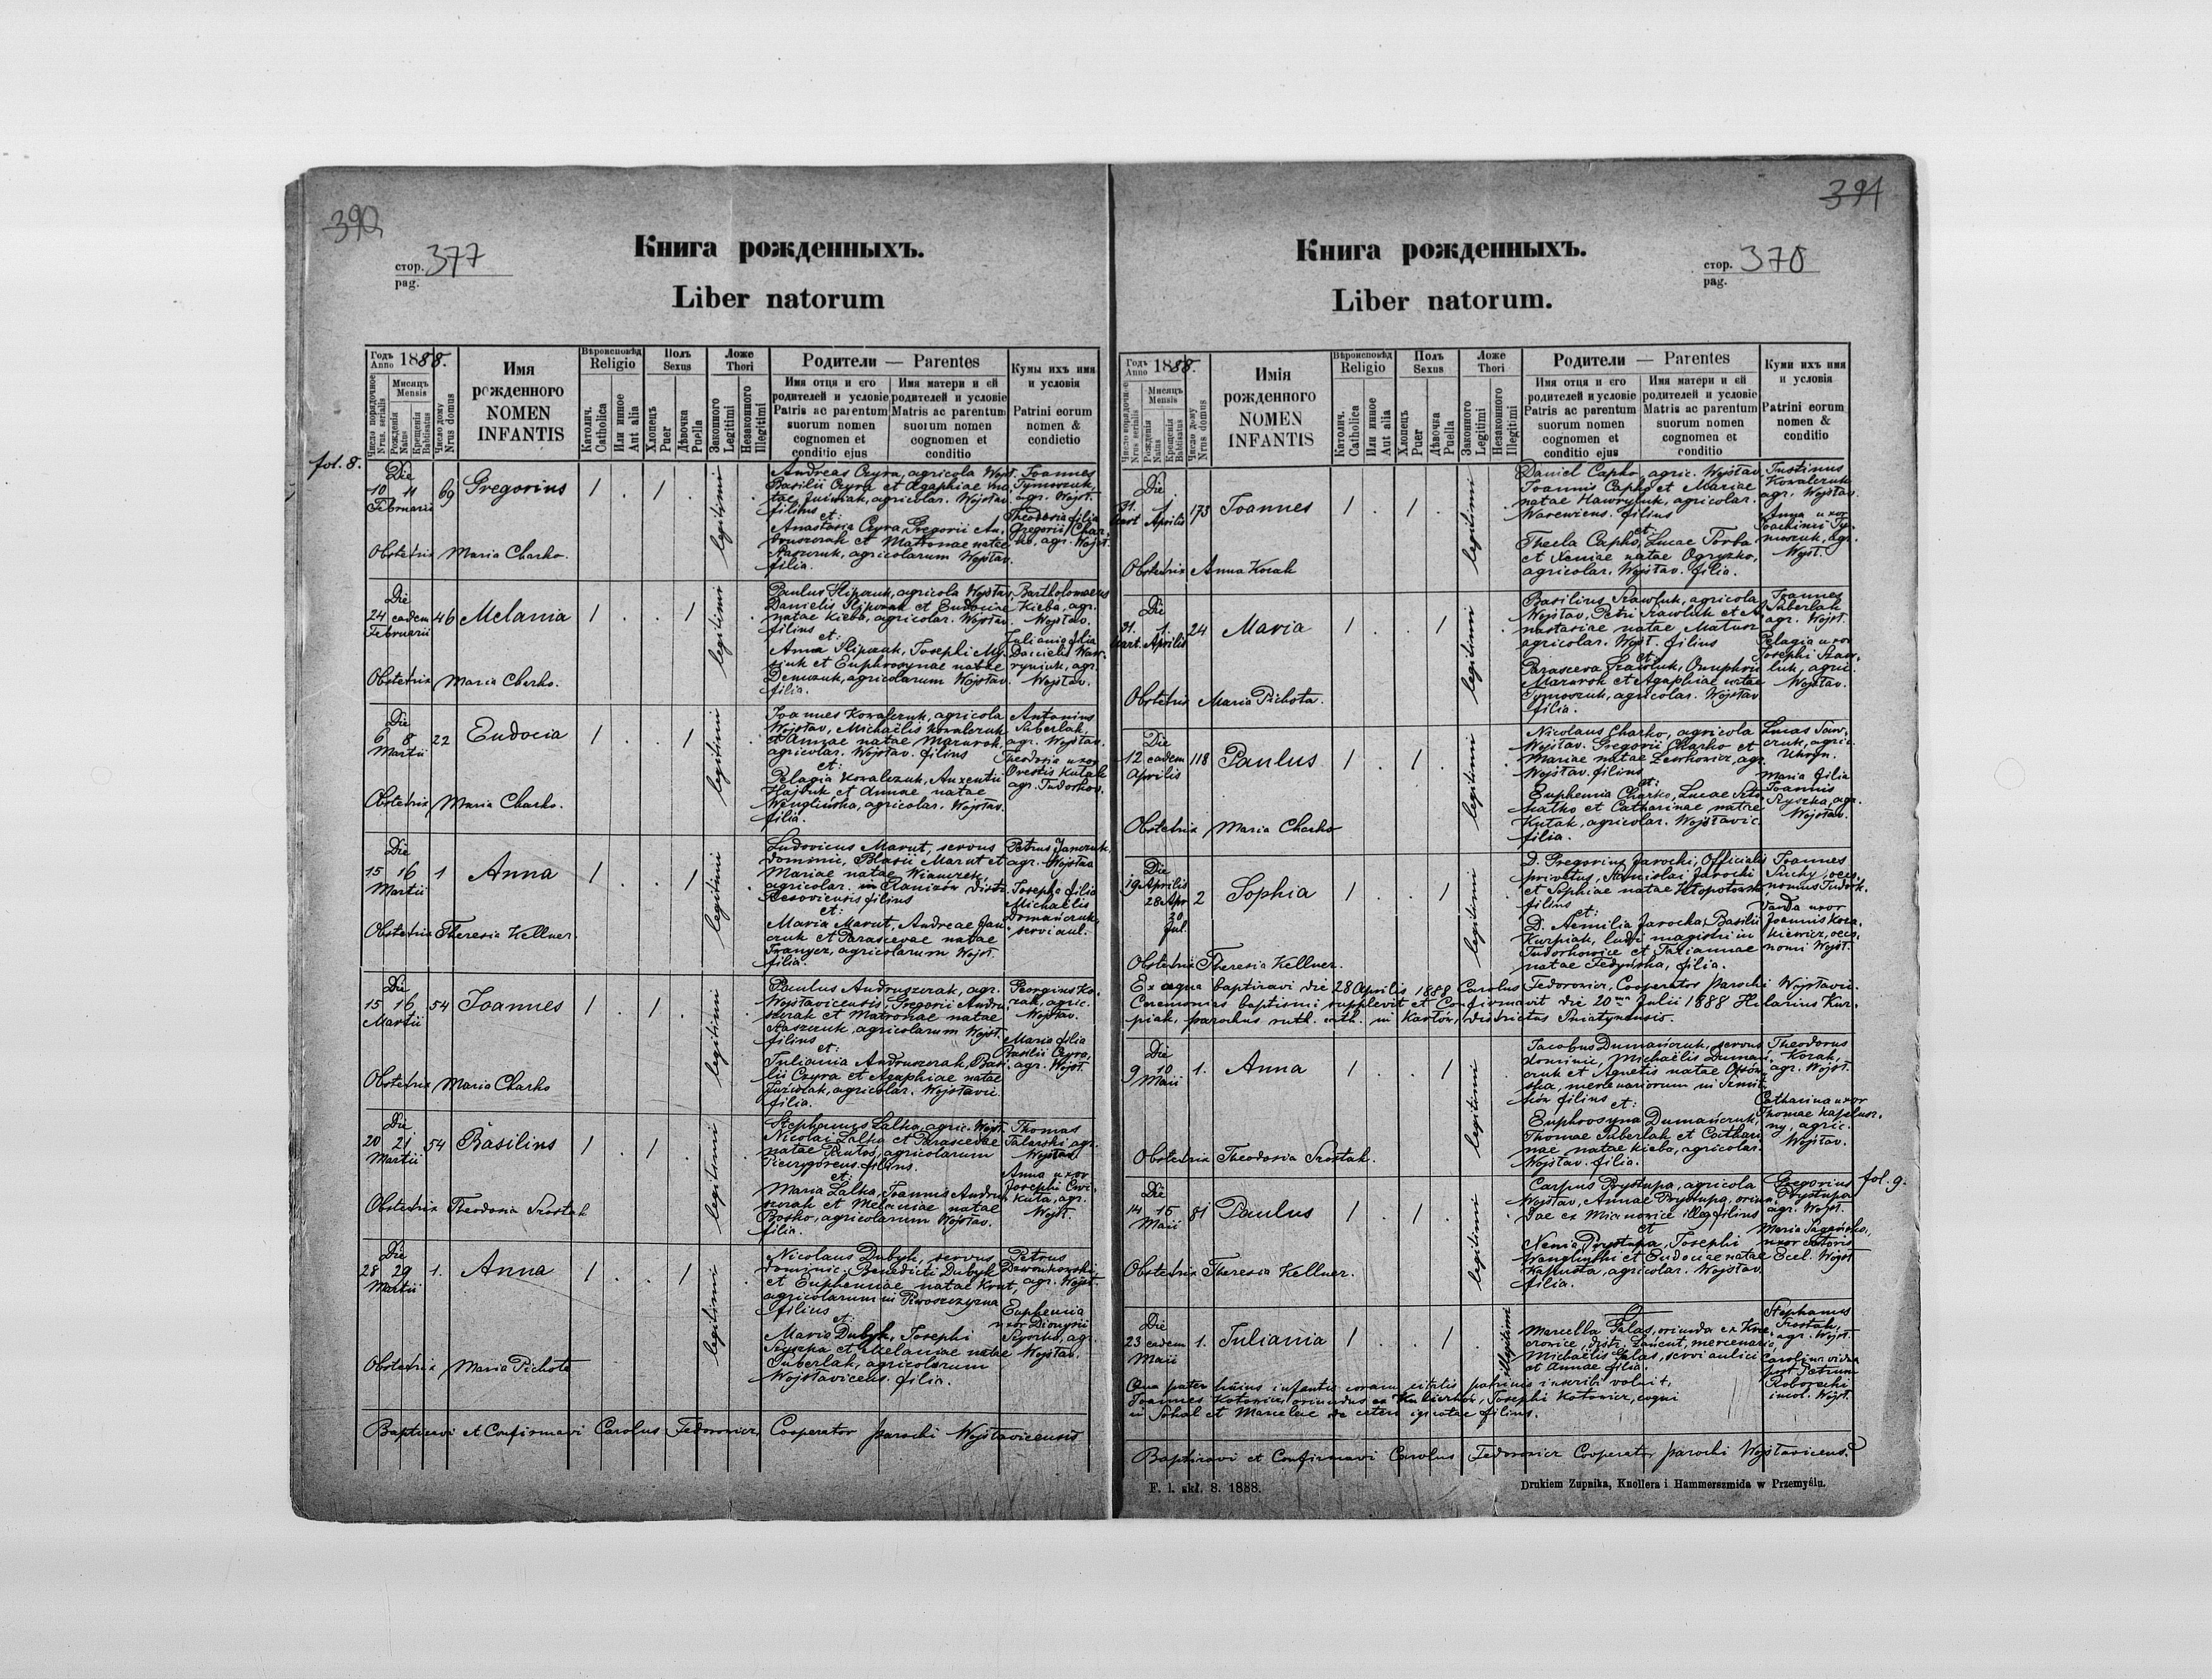 390
стор. 377
pag.
Книга рожденныхъ.
Liber natorum
Годъ 1888.
Anno
Мисяць
Mensis
Число порядочное
Nrus. serialis
Рожденія
Natus
Крещенія
Babtisatus
Число дому
Nrus domus
Имя
рожденного
NOMEN
INFANTIS
Вѣроисповѣд
Religio
Католич.
Catholica
Или инное
Aut alia
Полъ
Sexus
Хлопецъ
Puer
Дѣвочка
Puella
Ложе
Thori
Законного
Legitimi
Незаконного
Illegitimi
Родители — Parentes
Имя отця и его
родителей и условіе
Patris ac parentum
suorum nomen
cognomen et
conditio ejus
Имя матери и ей
родителей и условіе
Matris ac parentum
suorum nomen
cognomen et
conditio
Кумы ихъ имя
и условія
Patrini eorum
nomen &
condictio
fol. 8.
Die
10 11 69 Gregorius 1 . 1 . legitimi .
Februarii
Andreas Czyra, agricola Wojst.
Basilii Czyra et Agaphiae na-
tae, agricolar. Wojstav.
filius
et:
Anastasia Czyra, Gregorii An-
druszczak et Matronae natae
Staszczuk, agricolarum Wojstav.
filia.
Joannes
Tymoszuk,
agr. Wojst.
Theodosia filia
Gregorii Char-
ko, agr. Wojst.
Obstetrix Maria Charko.
Die
24 eadem 46 Melania 1 . . 1 legitimi .
Februarii
Paulus Slipczuk, agricola Wojstav.
Danielis Slipczuk et Eudociae
natae Kieba, agricolar. Wojstav.
filius
et:
Anna Slipczuk, Josephi
et Euphrosynae natae
Demczuk, agricolarum Wojstav.
filia.
Bartholomaeus
Kieba, agr.
Wojstav.
Julianna filia
Danielis
agr.
Wojstav.
Obstetrix Maria Charko.
Die
6 8 22 Eudocia 1 . . 1 legitimi .
Martii
Joannes Kowalczuk, agricola
Wojstav, Michaëlis Kowalczuk
et Annae natae Mazurok,
agricolar. Wojstav. filius
et:
Pelagia Kowalczuk, Auxentii
Hajduk et Annae natae
Wenglińska, agricolar. Wojstav.
filia.
Antonius
Puberlak,
agr. Wojstav.
Theodosia uxor
Orestis Kutak
agr. Tudorkov.
Obstetrix Maria Charko.
Die
15 16 1 Anna 1 . . 1 legitimi .
Martii
Ludovicus Marut, servus
dominic, Blasii Marut et
Mariae natae
agricolar. in distr.
Resoviensis filius
et:
Maria Marut, Andreae Jan-
czuk et Parascevae natae
Franyez, agricolarum Wojst.
filia.
Petrus Janczuk,
agr. Wojstaa
Josepha filia
Michaëlis
Domańczuk,
servi aul.
Obstetrix Theresia Kellner.
Die
15 16 54 Joannes 1 . 1 . legitimi .
Martii
Paulus Andruszczak, agr.
Wojstavicensis, Gregorii Andru-
szczak et Matronae natae
Staszczuk, agricolarum Wojst.
filius
et:
Juliania Andruszczak, Basi-
lii Czyra et Agaphiae natae
agricolar. Wojstavic.
filia.
Georgius Ko-
zak, agric.
Wojstav.
Maria filia
Basilii Czyra,
agr. Wojst.
Obstetrix Maria Charko
Die
20 21 54 Basilius 1 . 1 . legitimi .
Martii
Stephanus Lalka, agric. Wojst.
Nicolai Lalka et Parascevae
natae Prutos, agricolarum
filius.
et:
Maria Lalka, Joannis Andru-
szczak et Melaniae natae
Bosko, agricolarum Wojstav.
filia.
Thomas
Talarski, agr.
Wojstav.
Anna uxor
Josephi Cwi-
kuta, agr.
Wojst.
Obstetrix Theodosia Szostak
Die
28 29 1. Anna 1 . . 1 legitimi .
Martii
Nicolaus Dubyk, servus
dominic. Benedicti Dubyk
et Euphemiae natae Krut,
agricolarum in Piwoszczyzna
filius
et:
Maria Dubyk, Josephi
Szyszka et Melaniae natae
Puberlak, agricolarum
Wojstavicens. filia.
Petrus
Dzwonkowski,
agr. Wojst.
Euphemia
uxor Dionysii
agr.
Wojstav.
Obstetrix Maria Pichota
Baptisavi et Confirmavi Carolus Fedorowicz, Cooperator parochi Wojstavicensis
391
стор. 378
pag.
Книга рожденныхъ.
Liber natorum.
Годъ 1888.
Anno
Мисяць
Mensis
Число порядочное
Nrus serialis
Рожденія
Natus
Крещенія
Babtisatus
Число дому
Nrus domus
Имія
рожденного
NOMEN
INFANTIS
Вѣроисповѣд
Religio
Католич.
Catholica
Или инное
Aut alia
Полъ
Sexus
Хлопецъ
Puer
Дѣвочка
Puella
Ложе
Thori
Законного
Legitimi
Незаконного
Illegitimi
Родители — Parentes
Имя отця и его
родителей и условіе
Patris ac parentum
suorum nomen
cognomen et
conditio ejus
Имя матери и ей
родителей и условіе
Matris ac parentum
suorum nomen
cognomen et
conditio
Куми ихъ имя
и условія
Patrini eorum
nomen &
conditio
Die
31. 1 173 Joannes 1 . 1 . legitimi .
Mart. Aprilis
Daniel Capko, agric. Wojstav
Joannis Capko et Mariae
natae Hawryluk, agricolar.
Warewicens. filius
et:
Thecla Capko, Lucae Torba
et Xeniae natae Ogryzko,
agricolar. Wojstav. filia.
Justinus
Kowalczuk
agr. Wojstav.
Anna uxor
Joachimi Ty-
moszuk, agr.
Wojst.
Obstetrix Anna Kozak
Die
31. 1. 24 Maria 1 . . 1 legitimi .
Mart. Aprilis
Basilius Szawluk, agricola
Wojstav, Petri Szawluk et A-
nastasiae natae Matusz
agricolar. Wojst. filius
et
Parasceva Szawluk, Onuphrii
Mazurok et Agaphiae natae
Tymoszuk, agricolar. Wojstav
filia.
Joannes
Puberlak
agr. Wojst.
Pelagia uxor
Josephi Szaw-
luk, agric.
Wojstav.
Obstetrix Maria Pichota.
Die
12 eadem 118 Paulus 1 . 1 . legitimi .
Aprilis
Nicolaus Charko, agricola
Wojstav. Gregorii Charko et
Mariae natae Lewkowicz, agr.
Wojstav. filius
et:
Euphemia Charko, Lucae
et Catharinae natae
Kutak, agricolar. Wojstavic.
filia.
Lucas
agric.
Uhryn.
Maria filia
Joannis
Szyszka, agr.
Wojstav.
Obstetrix Maria Charko
Die
19 Aprilis 2 Sophia 1 . . 1 legitimi .
28 Apr
20
Jul.
D. Gregorius Jarocki, Officialis
privatus, Stanislai Jarocki
et Sophiae natae Kłopotowska
filius
et:
D. Aemilia Jarocka, Basilii
Kurpiak, ludi magistri in
Tudorkowice et Tatiannae
natae Fedyńska, filia.
Joannes
Suchy, oeco-
nomus Tudork.
Vanda uxor
Joannis Koza-
kiewicz, oeco-
nomi Wojst.
Obstetrix Theresia Kellner.
Ex aqua baptisavi die 28 Aprilis 1888 Carolus Fedorowicz, Cooperator parochi Wojstavic.
Ceremonias baptismi supplevit et Confirmavit die 20ma Julii 1888 Hilarius Kur-
piak, parochus ruth. cath. in Karlów, districtus Sniatynensis.
Die
9 10 1. Anna 1 . . 1 legitimi .
Maii
Jacobus Dumańczuk, servus
dominic, Michaëlis Dumań-
czuk et Agnetis natae
mercenariorum in
filius
et:
Euphrosyna Dumańczuk,
Thomae Puberlak et Cathari-
nae natae Kieba, agricolar.
Wojstav. filia.
Theodorus
Kozak,
agr. Wojst.
Catharina uxor
Thomae
agric.
Wojstav.
Obstetrix Theodosia Szostak.
fol. 9.
Die
14 15 81 Paulus 1 . 1 . legitimi .
Maii
Carpus Prystupa, agricola
Wojstav, Annae Prystupa, oriun-
dae ex Mianowice illeg. filius
et
Xenia Prystupa, Josephi
Wenglinski et Eudociae natae
Kapusta, agricolar. Wojstav.
filia.
Gregorius
Prystupa
agr. Wojst.
Maria
uxor cantoris
Eccl. Wojst
Obstetrix Theresia Kellner.
Die
23 eadem 1. Juliania 1 . . 1 . illegitimi
Maii
Marcella Falas, oriunda ex
distr. Łancut, mercenaria
Michaëlis Falas, servi aulici
et Annae filia.
Stephanus
Szostak,
agr. Wojst.
Carolina vidua
post Petrum
incol. Wojst.
Qua pater huius infantis coram citatis patrinis inscribi voluit,
Joannes Kotowicz, oriundus ex Josephi Kotowicz,
in Sokal et Marcelae de cetero ignotae filius.
Baptisavi et Confirmavi Carolus Fedorowicz Cooperator parochi Wojstavicens.
F. l. skł. 8. 1888.
Drukiem Zupnika, Knollera i Hammerszmida w Przemyślu.